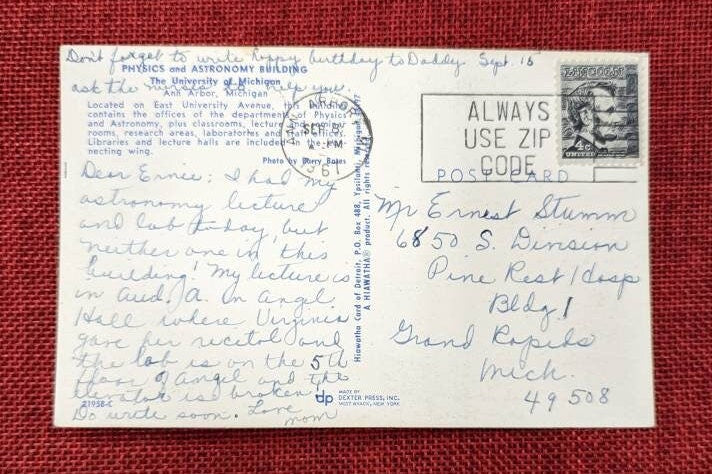 Don't forget to write happy birthday to Daddy. Sept. 15
ask the nurse to help you.
PHYSICS and ASTRONOMY BUILDING
The University of Michigan
Ann Arbor, Michigan
Located on East University Avenue, this building
contains the offices of the department of Physics
and Astronomy, plus classrooms, lecture and
rooms, research areas, laboratories and staff offices.
Libraries and lecture halls are included in the
necting wing.
Photo by Barry Bates
Dear Ernie: I had my
astronomy lecture
and lab today, but
neither one in this
building! My lecture is
in Aud. A. In Angel
Hall where Virginia
gave her recital and
the lab is on the 5th
floor of Angel and the
elevator is broken!
Do write soon. Love
mom
21958-C
Hiawatha Card of Detroit, P.O. Box 488, Ypsilanti, Michigan
A HIAWATHA® product. All rights
dp
MADE BY
DEXTER PRESS, INC.
WEST NYACK, NEW YORK
ANN ARBOR
SEP
PM
ALWAYS
USE ZIP
CODE
4c
UNITED
POST CARD
Mr Ernest Stumm
6850 S. Division
Pine Rest Hosp
Bldg 1
Grand Rapids
Mich.
49508